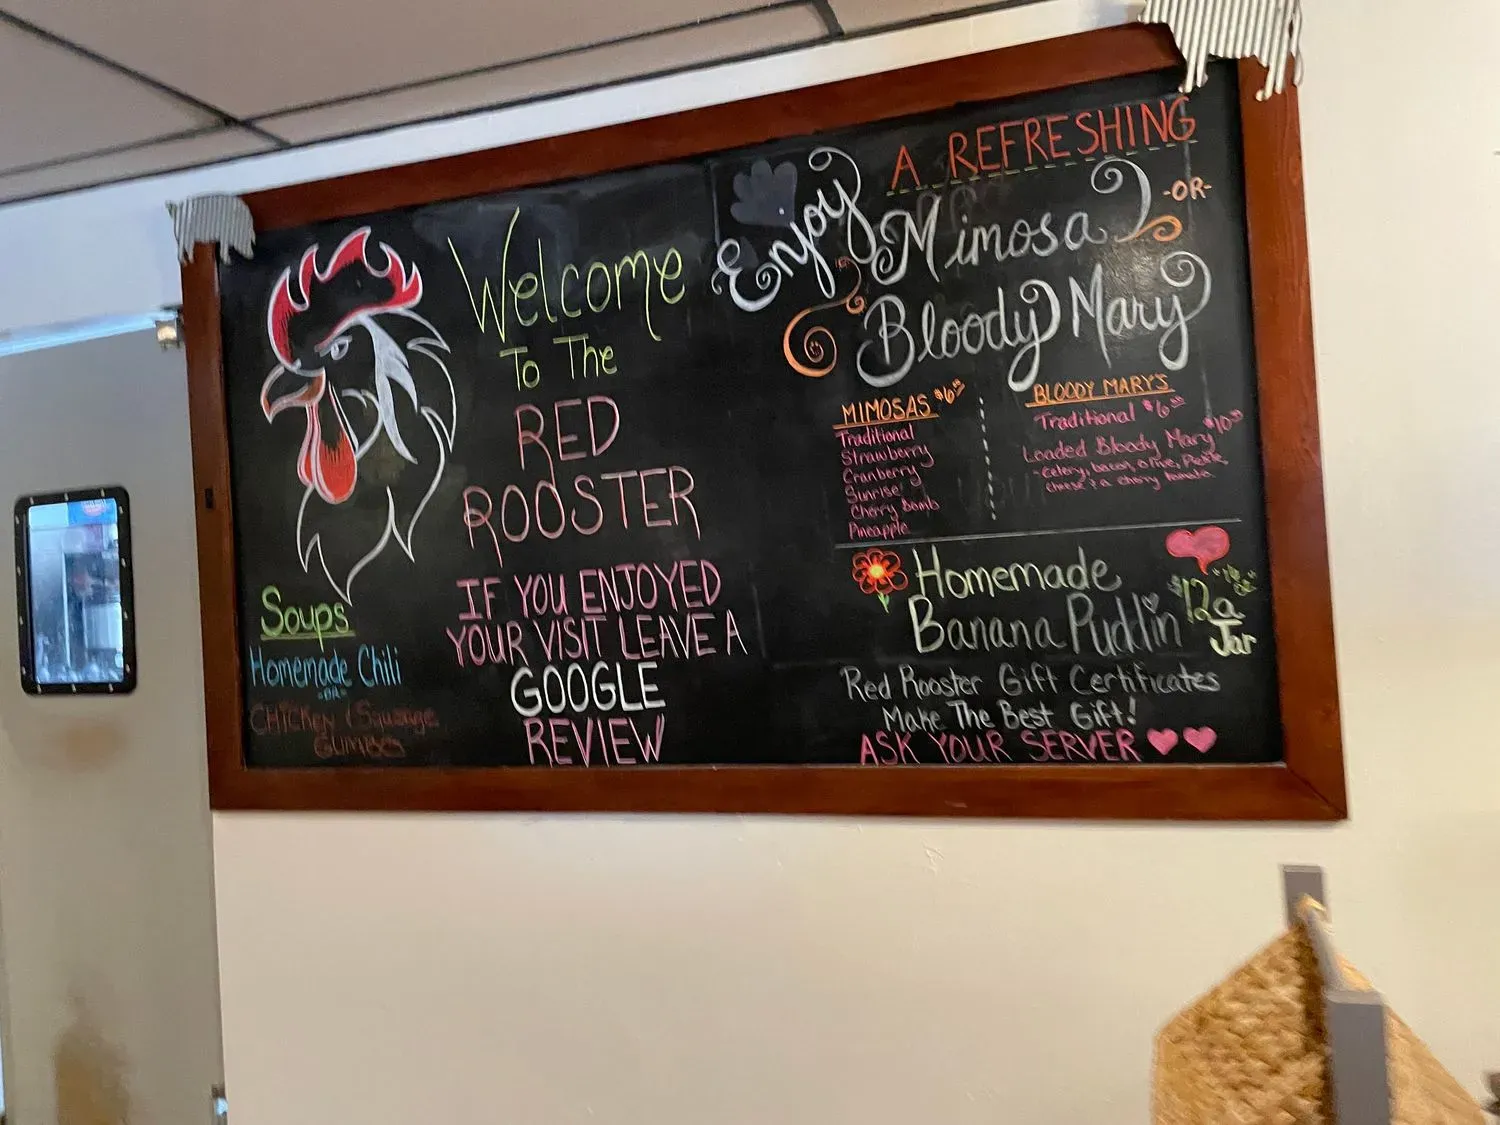 Welcome
To The
RED
ROOSTER
IF YOU ENJOYED
YOUR VISIT LEAVE A
GOOGLE
REVIEW
Soups
Homemade Chili
-OR-
CHICKEN & Sausage
GUMBO
A REFRESHING
Enjoy
Mimosa -OR-
Bloody Mary
MIMOSAS $6
Traditional
Strawberry
Cranberry
Sunrise
Cherry Bomb
Pineapple
BLOODY MARY'S
Traditional $6
Loaded Bloody Mary $10
- Celery, bacon, olive, Pickle,
cheese & a cherry tomato.
Homemade
Banana Puddin
$12 a
Jar
Red Rooster Gift Certificates
Make The Best Gift!
ASK YOUR SERVER